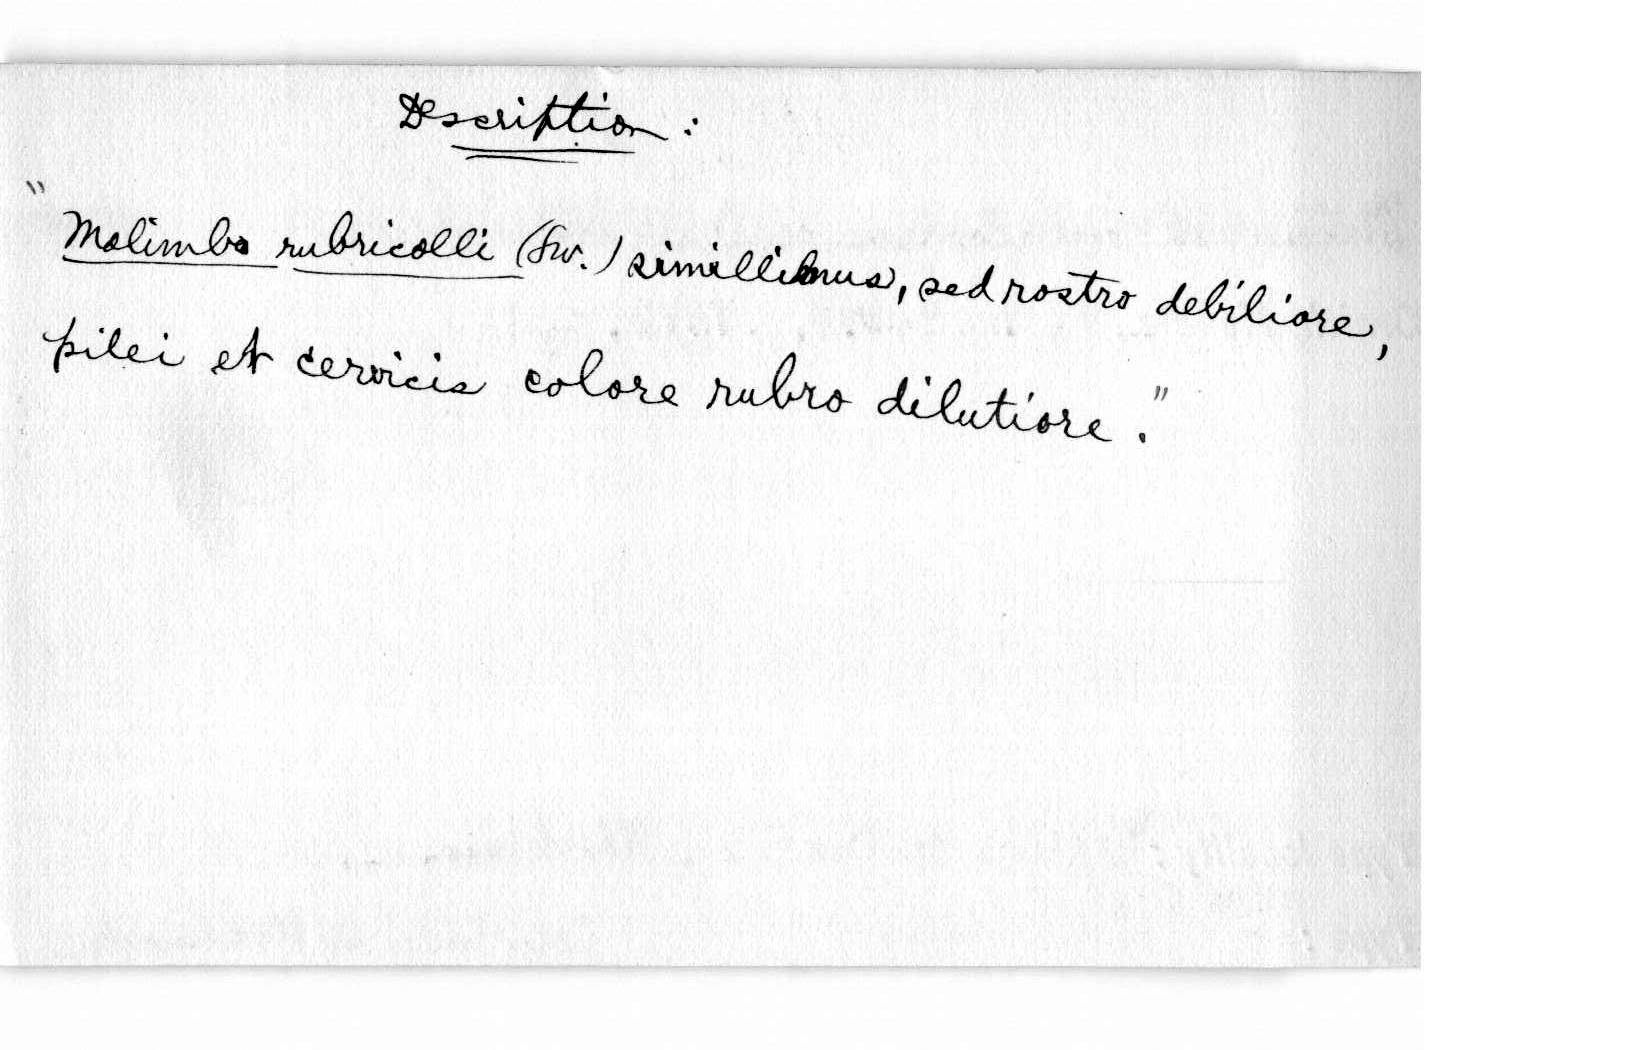 Description :
"Malimbo rubricolli (Sw.) simillimus, sed rostro debiliore,
pilei et cervicis colore rubro dilutiore."